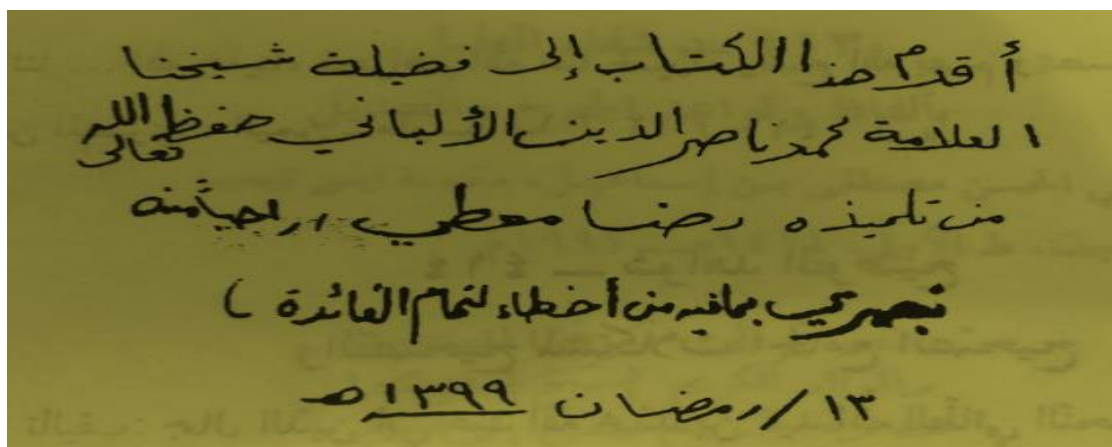 أقدم هذا الكتاب إلى فضيلة شيخنا
العلامة محمد ناصر الدين الألباني حفظه الله تعالى
من تلميذه رضا معطي، راجياً منه
تبصيري بما فيه من أخطاء لتمام الفائدة )
١٣/رمضان ١٣٩٩ه